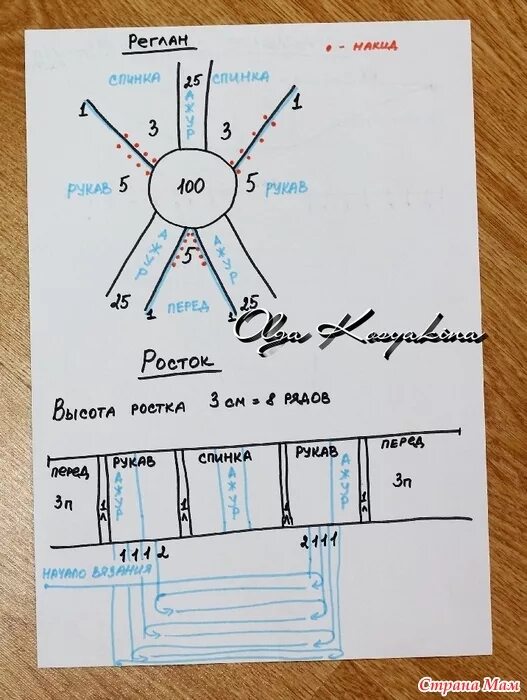 Реглан
• - накид
спинка 25 спинка
ажур
1 1
3 3
рукав 5 100 5 рукав
ажур 5 ажур
25 1 перед 1 25
Olga Kosyakina
Росток
Высота ростка 3 см = 8 рядов
перед рукав спинка рукав перед
3п 1п ажур 1п ажур 1п ажур 1п 3п
1 1 1 2 2 1 1 1
начало вязания
Страна Мам